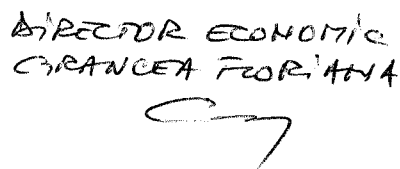 DIRECTOR ECONOMIC
GRANCEA FLORIANA